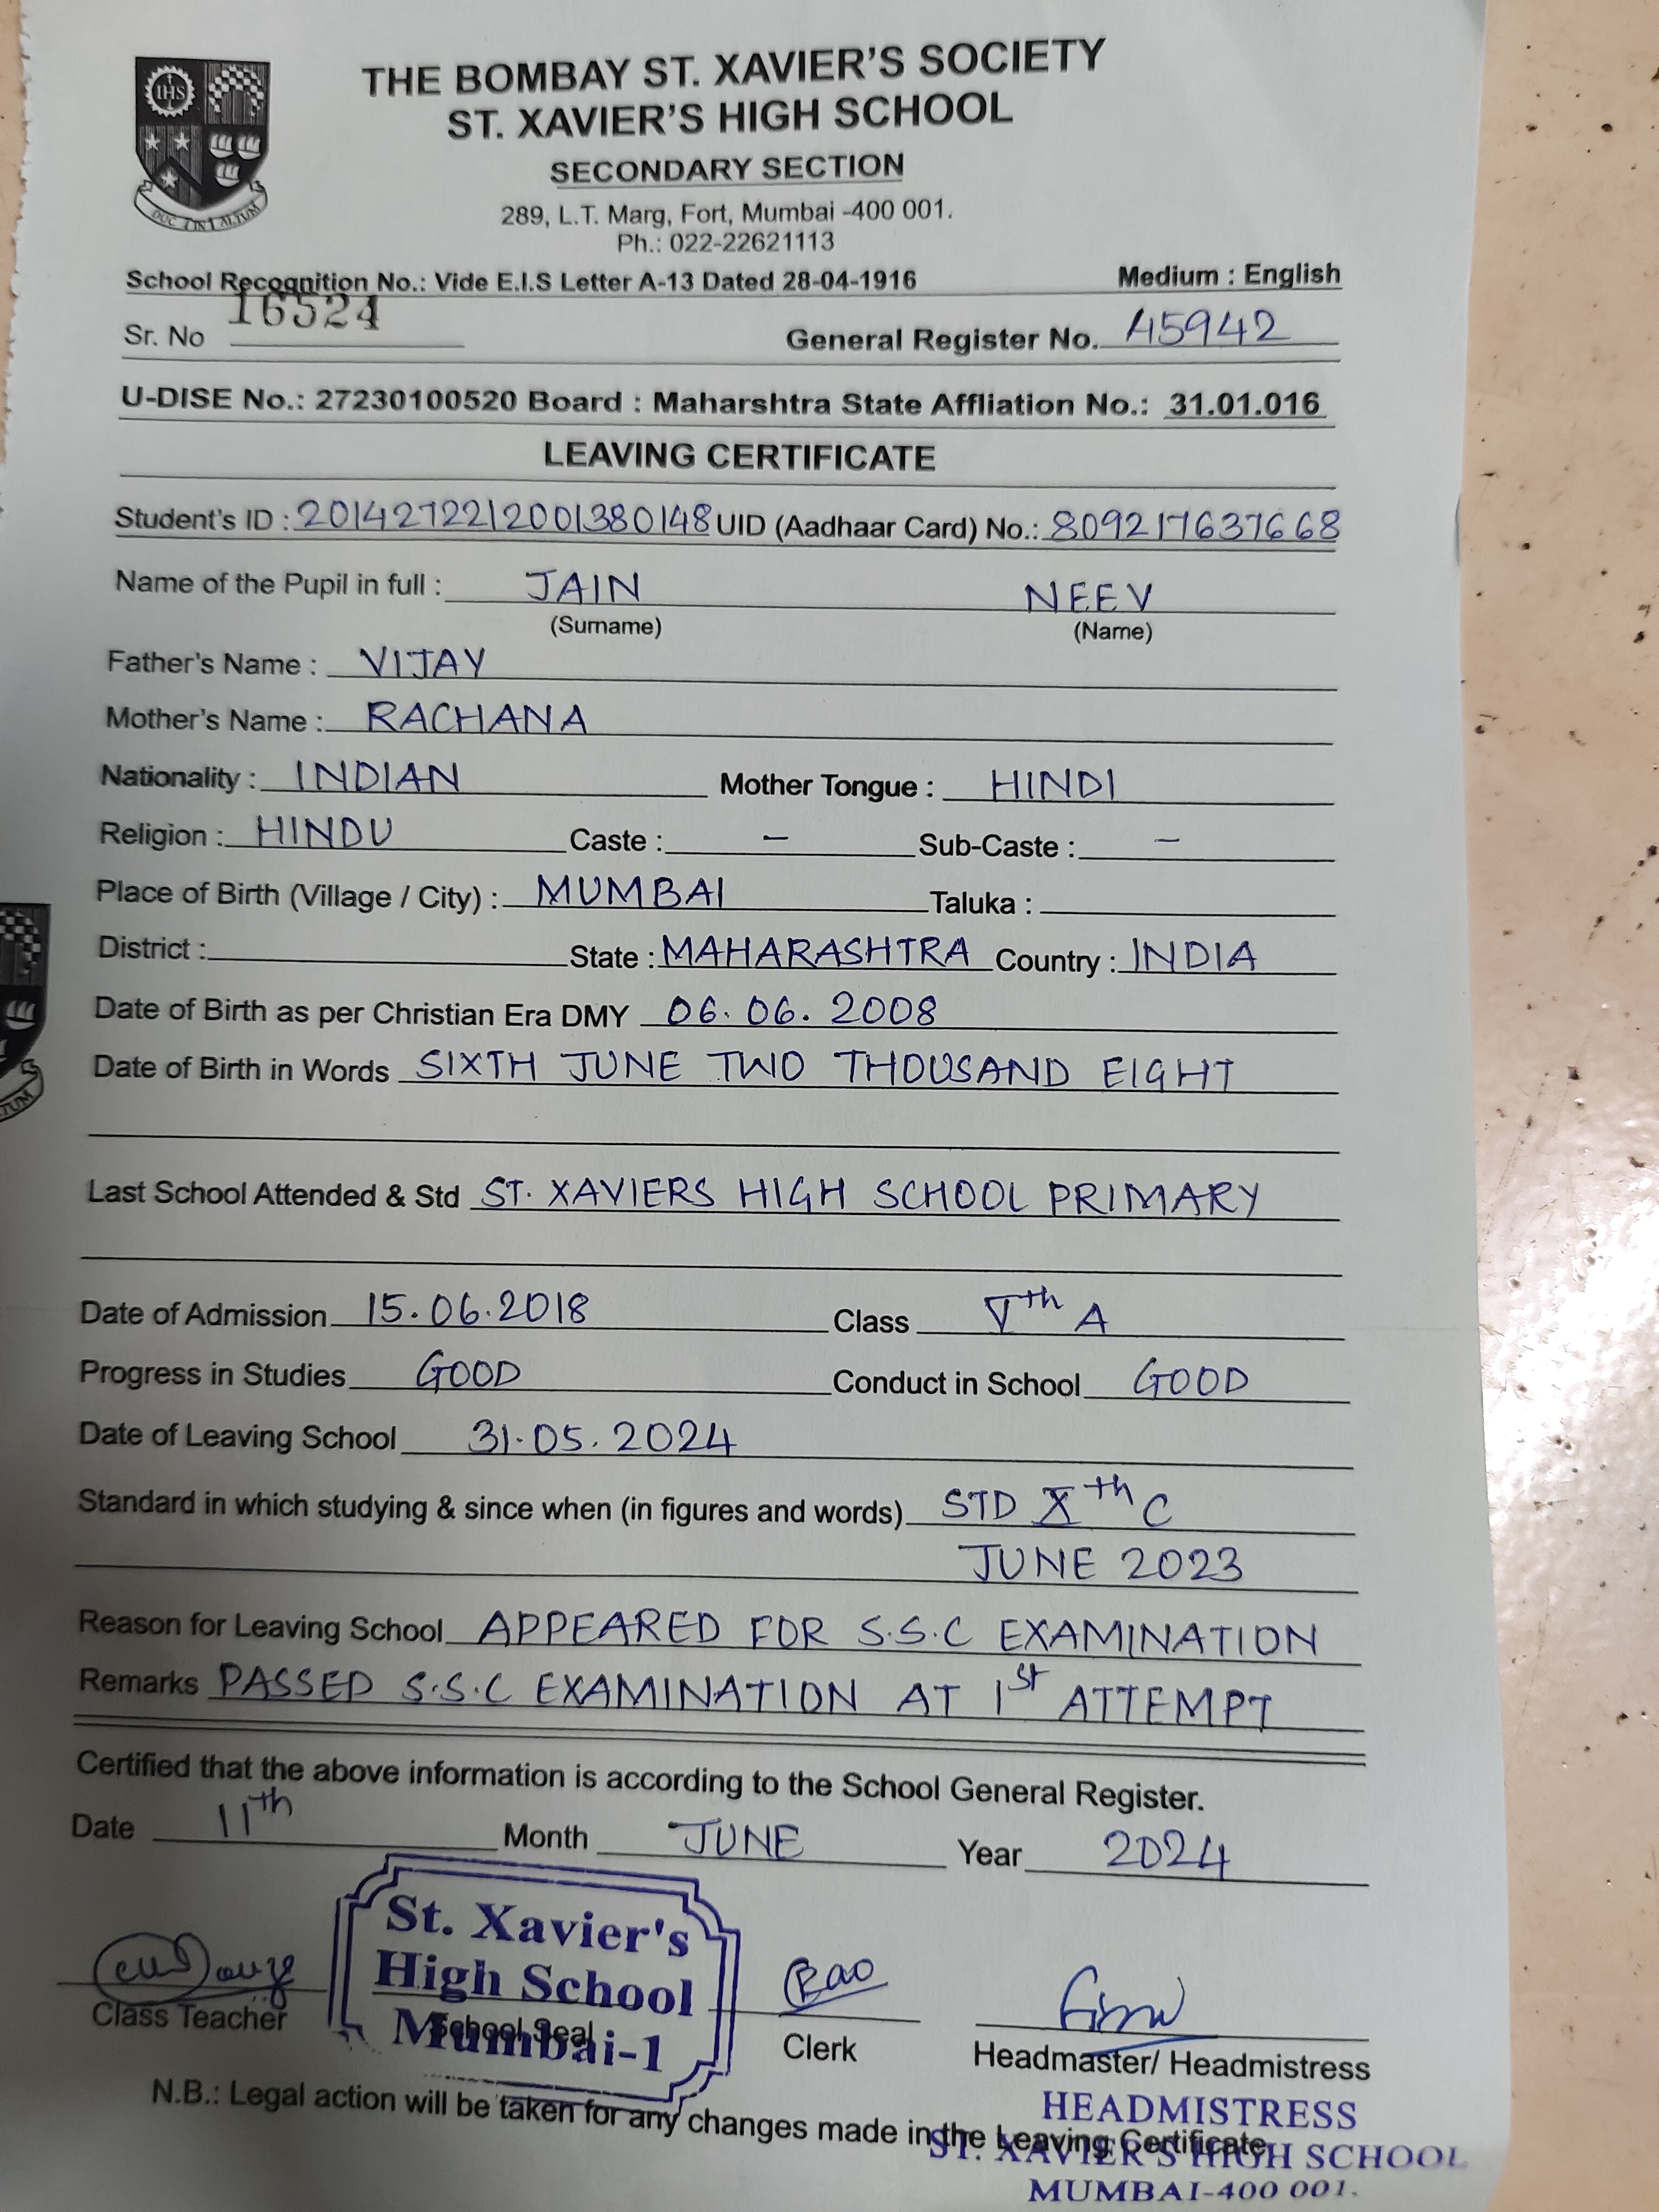 IHS
DUC IN ALTUM
THE BOMBAY ST. XAVIER'S SOCIETY
ST. XAVIER'S HIGH SCHOOL
SECONDARY SECTION
289, L.T. Marg, Fort, Mumbai -400 001.
Ph.: 022-22621113
School Recognition No.: Vide E.I.S Letter A-13 Dated 28-04-1916 Medium : English
Sr. No 16524 General Register No. A5942
U-DISE No.: 27230100520 Board : Maharshtra State Affliation No.: 31.01.016
LEAVING CERTIFICATE
Student's ID : 2014272212001380148 UID (Aadhaar Card) No.: 809217637668
Name of the Pupil in full : JAIN NEEV
(Surname) (Name)
Father's Name : VIJAY
Mother's Name : RACHANA
Nationality : INDIAN Mother Tongue : HINDI
Religion : HINDU Caste : – Sub-Caste : –
Place of Birth (Village / City) : MUMBAI Taluka :
District : State : MAHARASHTRA Country : INDIA
Date of Birth as per Christian Era DMY 06.06.2008
Date of Birth in Words SIXTH JUNE TWO THOUSAND EIGHT
Last School Attended & Std ST. XAVIERS HIGH SCHOOL PRIMARY
Date of Admission 15.06.2018 Class Vth A
Progress in Studies GOOD Conduct in School GOOD
Date of Leaving School 31.05.2024
Standard in which studying & since when (in figures and words) STD Xth C
JUNE 2023
Reason for Leaving School APPEARED FOR S.S.C EXAMINATION
Remarks PASSED S.S.C EXAMINATION AT 1st ATTEMPT
Certified that the above information is according to the School General Register.
Date 11th Month JUNE Year 2024
St. Xavier's
High School
Mumbai-1
Rao
Class Teacher School Seal Clerk Headmaster/ Headmistress
N.B.: Legal action will be taken for any changes made in the Leaving Certificate
HEADMISTRESS
ST. XAVIER'S HIGH SCHOOL
MUMBAI-400 001.
TUM